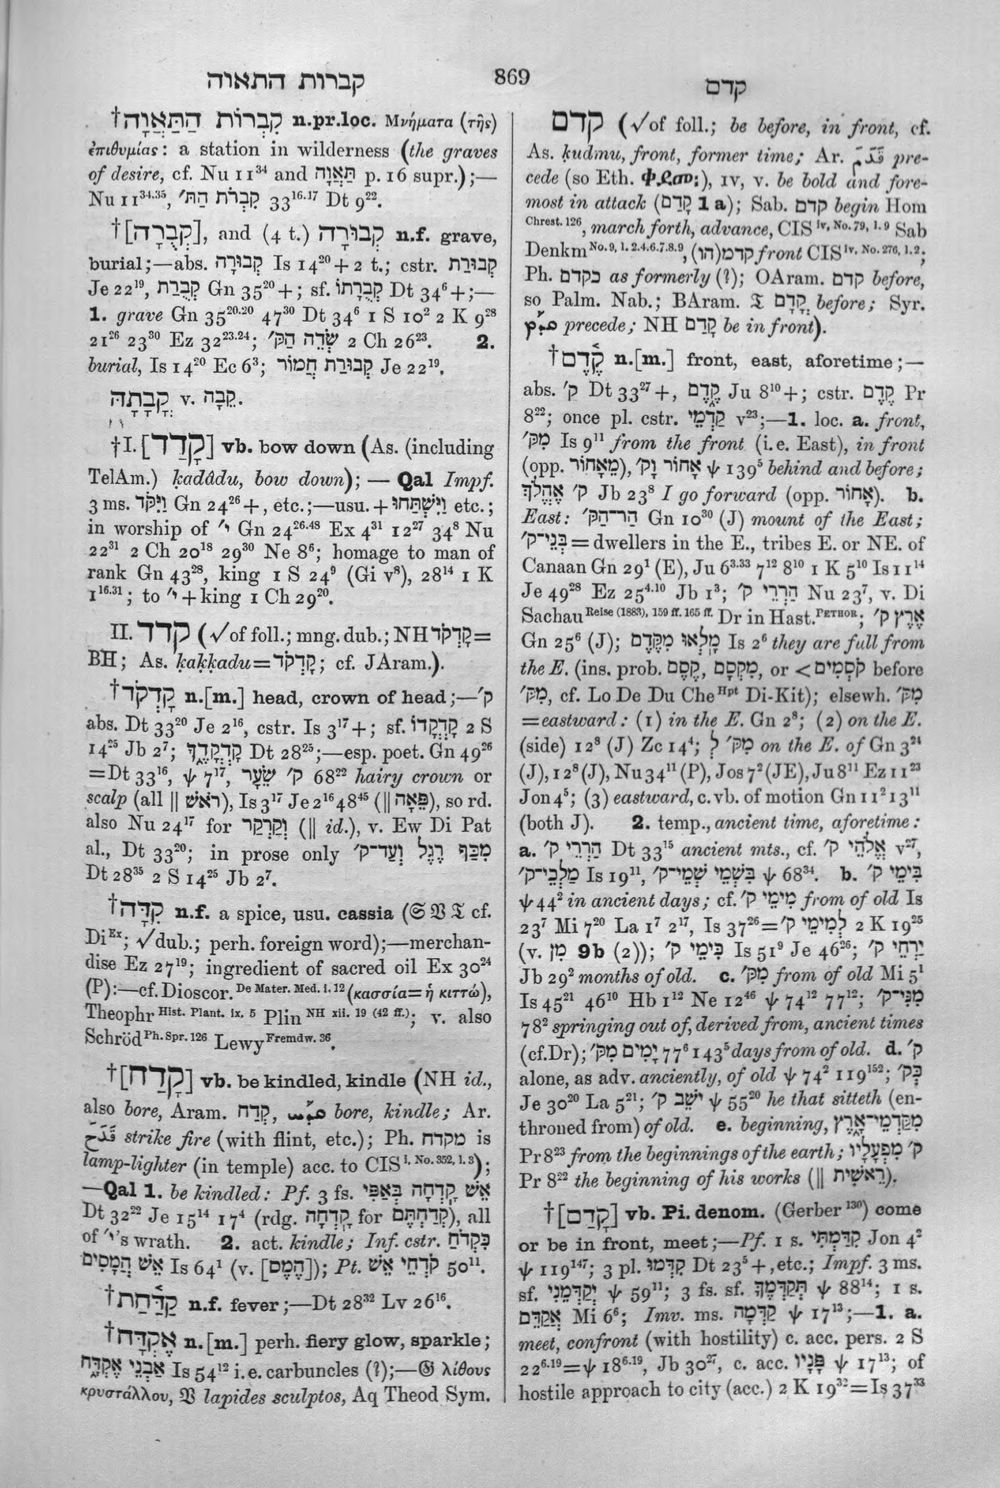 קברות התאוה
869
קדם
†קִבְרוֹת הַתַּאֲוָה n.pr.loc. Μνήματα (τῆς)
ἐπιθυμίας: a station in wilderness (the graves
of desire, cf. Nu 11³⁴ and תַּאֲוָה p. 16 supr.);—
Nu 11³⁴·³⁵, קִבְרֹת הַתּ׳ 33¹⁶·¹⁷ Dt 9²².
†[קְבֻרָה], and (4 t.) קְבוּרָה n.f. grave,
burial;—abs. קְבוּרָה Is 14²⁰ + 2 t.; cstr. קְבוּרַת
Je 22¹⁹, קְבֻרַת Gn 35²⁰ +; sf. קְבֻרָתוֹ Dt 34⁶ +;—
1. grave Gn 35²⁰·²⁰ 47³⁰ Dt 34⁶ 1 S 10² 2 K 9²⁸
21²⁶ 23³⁰ Ez 32²³·²⁴; שְׂדֵה הַקּ׳ 2 Ch 26²³. 2.
burial, Is 14²⁰ Ec 6³; קְבוּרַת חֲמוֹר Je 22¹⁹.
קָבָתָהּ v. קֵבָה.
†I. [קָדַד] vb. bow down (As. (including
TelAm.) ḳadâdu, bow down);— Qal Impf.
3 ms. וַיִּקֹּד Gn 24²⁶ +, etc.;—usu. + וַיִּשְׁתַּחוּ etc.;
in worship of י׳ Gn 24²⁶·⁴⁸ Ex 4³¹ 12²⁷ 34⁸ Nu
22³¹ 2 Ch 20¹⁸ 29³⁰ Ne 8⁶; homage to man of
rank Gn 43²⁸, king 1 S 24⁹ (Gi v⁸), 28¹⁴ 1 K
1¹⁶·³¹; to י׳ + king 1 Ch 29²⁰.
II. קדד (√of foll.; mng. dub.; NH קָדְקֹד=
BH; As. ḳaḳḳadu=קָדְקֹד; cf. JAram.).
†קָדְקֹד n.[m.] head, crown of head;—ק׳
abs. Dt 33²⁰ Je 2¹⁶, cstr. Is 3¹⁷ +; sf. קָדְקֳדוֹ 2 S
14²⁵ Jb 2⁷; קָדְקֳדֶךָ Dt 28²⁵;—esp. poet. Gn 49²⁶
=Dt 33¹⁶, ψ 7¹⁷, ק׳ שֵׂעָר 68²² hairy crown or
scalp (all ‖ רֹאשׁ), Is 3¹⁷ Je 2¹⁶ 48⁴⁵ (‖ פֵּאָה), so rd.
also Nu 24¹⁷ for וְקַרְקַר (‖ id.), v. Ew Di Pat
al., Dt 33²⁰; in prose only מִכַּף רֶגֶל וְעַד־ק׳
Dt 28³⁵ 2 S 14²⁵ Jb 2⁷.
†קִדָּה n.f. a spice, usu. cassia (𝔖 𝔙 𝔗 cf.
Di Ex; √dub.; perh. foreign word);—merchan-
dise Ez 27¹⁹; ingredient of sacred oil Ex 30²⁴
(P):—cf. Dioscor. De Mater. Med. i. 12 (κασσία=ἡ κιττώ),
Theophr Hist. Plant. ix. 5 Plin NH xii. 19 (42 ff.); v. also
Schröd Ph. Spr. 126 Lewy Fremdw. 36.
†[קָדַח] vb. be kindled, kindle (NH id.,
also bore, Aram. קְדַח, ܩܕܚ bore, kindle; Ar.
قَدَحَ strike fire (with flint, etc.); Ph. מקדח is
lamp-lighter (in temple) acc. to CIS i. No. 352, l. 3);
—Qal 1. be kindled: Pf. 3 fs. אֵשׁ קָדְחָה בְאַפִּי
Dt 32²² Je 15¹⁴ 17⁴ (rdg. קָדְחָה for קְדַחְתֶּם), all
of י׳'s wrath. 2. act. kindle; Inf. cstr. כִּקְדֹחַ
אֵשׁ הֲמָסִים Is 64¹ (v. [הֶמֶס]); Pt. קֹדְחֵי אֵשׁ 50¹¹.
†קַדַּחַת n.f. fever;—Dt 28³² Lv 26¹⁶.
†אֶקְדָּח n.[m.] perh. fiery glow, sparkle;
אַבְנֵי אֶקְדָּח Is 54¹² i.e. carbuncles (?);—𝔊 λίθους
κρυστάλλου, 𝔙 lapides sculptos, Aq Theod Sym.
קדם (√of foll.; be before, in front, cf.
As. ḳudmu, front, former time; Ar. قَدَمَ pre-
cede (so Eth. ቀደመ፡), IV, V. be bold and fore-
most in attack (קֶדֶם 1 a); Sab. קדם begin Hom
Chrest. 126, march forth, advance, CIS iv, No. 79, l. 9 Sab
Denkm No. 9, l. 2.4.6.7.8.9, קדמ(הו) front CIS iv. No. 276, l. 2;
Ph. כקדם as formerly (?); OAram. קדם before,
so Palm. Nab.; BAram. 𝔗 קֳדָם before; Syr.
ܩܕܡ precede; NH קָדַם be in front).
†קֶ֫דֶם n.[m.] front, east, aforetime;—
abs. ק׳ Dt 33²⁷ +, קֶדֶם Ju 8¹⁰ +; cstr. קֶדֶם Pr
8²²; once pl. cstr. קַדְמֵי v²³;—1. loc. a. front,
מִקּ׳ Is 9¹¹ from the front (i.e. East), in front
(opp. מֵאָחוֹר), אָחוֹר וָק׳ ψ 139⁵ behind and before;
ק׳ אֶהֱלֹךְ Jb 23⁸ I go forward (opp. אָחוֹר). b.
East: הַר־הַקּ׳ Gn 10³⁰ (J) mount of the East;
בְּנֵי־ק׳ = dwellers in the E., tribes E. or NE. of
Canaan Gn 29¹ (E), Ju 6³·³³ 7¹² 8¹⁰ 1 K 5¹⁰ Is 11¹⁴
Je 49²⁸ Ez 25⁴·¹⁰ Jb 1³; הַרְרֵי ק׳ Nu 23⁷, v. Di
Sachau Reise (1883), 159 ff. 165 ff. Dr in Hast. PETHOR; אֶרֶץ ק׳
Gn 25⁶ (J); מָלְאוּ מִקֶּדֶם Is 2⁶ they are full from
the E. (ins. prob. קֶסֶם, מִקְסָם, or < קֹסְמִים before
מִקּ׳, cf. Lo De Du Che Hpt Di-Kit); elsewh. מִקּ׳
=eastward: (1) in the E. Gn 2⁸; (2) on the E.
(side) 12⁸ (J) Zc 14⁴; מִקּ׳ לְ on the E. of Gn 3²⁴
(J), 12⁸ (J), Nu 34¹¹ (P), Jos 7² (JE), Ju 8¹¹ Ez 11²³
Jon 4⁵; (3) eastward, c. vb. of motion Gn 11² 13¹¹
(both J). 2. temp., ancient time, aforetime:
a. הַרְרֵי ק׳ Dt 33¹⁵ ancient mts., cf. אֱלֹהֵי ק׳ v²⁷,
מַלְכֵי־ק׳ Is 19¹¹, בִּשְׁמֵי שְׁמֵי־ק׳ ψ 68³⁴. b. בִּימֵי ק׳
ψ 44² in ancient days; cf. מִימֵי ק׳ from of old Is
23⁷ Mi 7²⁰ La 1⁷ 2¹⁷, Is 37²⁶=לְמִימֵי ק׳ 2 K 19²⁵
(v. מִן 9b (2)); כִּימֵי ק׳ Is 51⁹ Je 46²⁶; יַרְחֵי ק׳
Jb 29² months of old. c. מִקּ׳ from of old Mi 5¹
Is 45²¹ 46¹⁰ Hb 1¹² Ne 12⁴⁶ ψ 74¹² 77¹²; מִנִּי־ק׳
78² springing out of, derived from, ancient times
(cf. Dr); יָמִים מִקּ׳ 77⁶ 143⁵ days from of old. d. ק׳
alone, as adv. anciently, of old ψ 74² 119¹⁵²; כְּק׳
Je 30²⁰ La 5²¹; יֹשֵׁב ק׳ ψ 55²⁰ he that sitteth (en-
throned from) of old. e. beginning, מִקַּדְמֵי־אֶרֶץ
Pr 8²³ from the beginnings of the earth; ק׳ מִפְעָלָיו
Pr 8²² the beginning of his works (‖ רֵאשִׁית).
†[קָדַם] vb. Pi. denom. (Gerber ¹³⁰) come
or be in front, meet;—Pf. 1 s. קִדַּמְתִּי Jon 4²
ψ 119¹⁴⁷; 3 pl. קִדְּמוּ Dt 23⁵ +, etc.; Impf. 3 ms.
sf. יְקַדְּמֵנִי ψ 59¹¹; 3 fs. sf. תְּקַדְּמֶךָּ ψ 88¹⁴; 1 s.
אֲקַדֵּם Mi 6⁶; Imv. ms. קַדְּמָה ψ 17¹³;—1. a.
meet, confront (with hostility) c. acc. pers. 2 S
22⁶·¹⁹=ψ 18⁶·¹⁹, Jb 30²⁷, c. acc. פָּנָיו ψ 17¹³; of
hostile approach to city (acc.) 2 K 19³²=Is 37³³